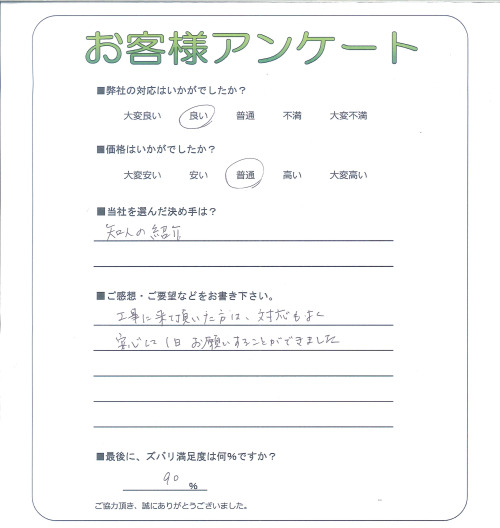 お客様アンケート
■弊社の対応はいかがでしたか？
大変良い 良い 普通 不満 大変不満
■価格はいかがでしたか？
大変安い 安い 普通 高い 大変高い
■当社を選んだ決め手は？
知人の紹介
■ご感想・ご要望などをお書き下さい。
工事に来て頂いた方は、対応もよく
安心して1日お願いすることができました
■最後に、ズバリ満足度は何%ですか？
90 %
ご協力頂き、誠にありがとうございました。